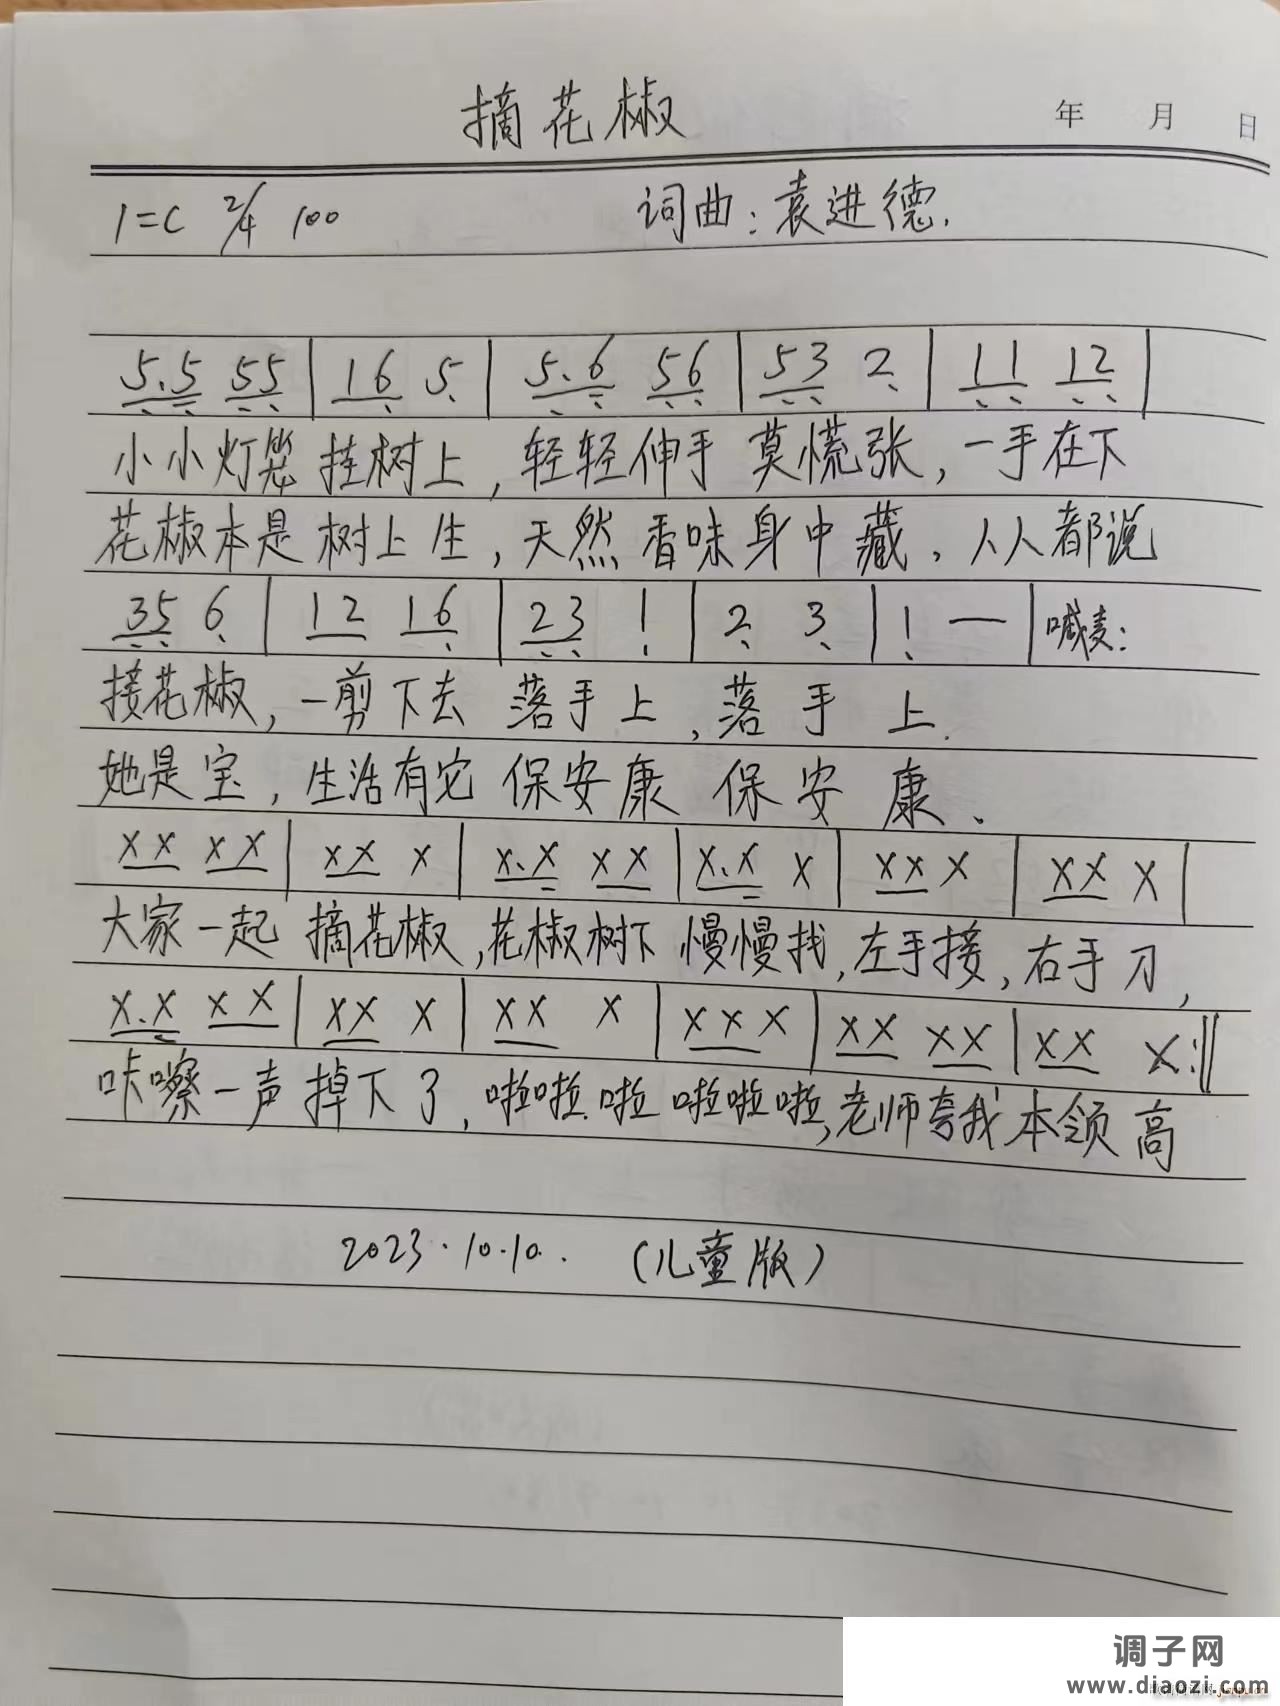 摘花椒
年 月 日
1=C 2/4 100 词曲：袁进德.
5.5 55 | 16 5 | 5.6 56 | 53 2 | 11 12 |
小小灯笼 挂树上，轻轻伸手 莫慌张，一手在下
花椒本是 树上生，天然香味身中藏，人人都说
35 6 | 12 16 | 23 1 | 2 3 | 1 — | 喊麦：
接花椒，一剪下去 落手上，落手上.
她是宝，生活有它 保安康 保安康、
XX XX | XX X | X.X XX | X.X X | XX X | XX X |
大家一起 摘花椒，花椒树下 慢慢找，左手接，右手刀，
X.X XX | XX X | XX X | XX X | XX XX | XX X :‖
咔嚓一声 掉下了，啦啦啦 啦啦啦，老师夸我 本领高
2023.10.10. （儿童版）
调子网
www.diaozi.com